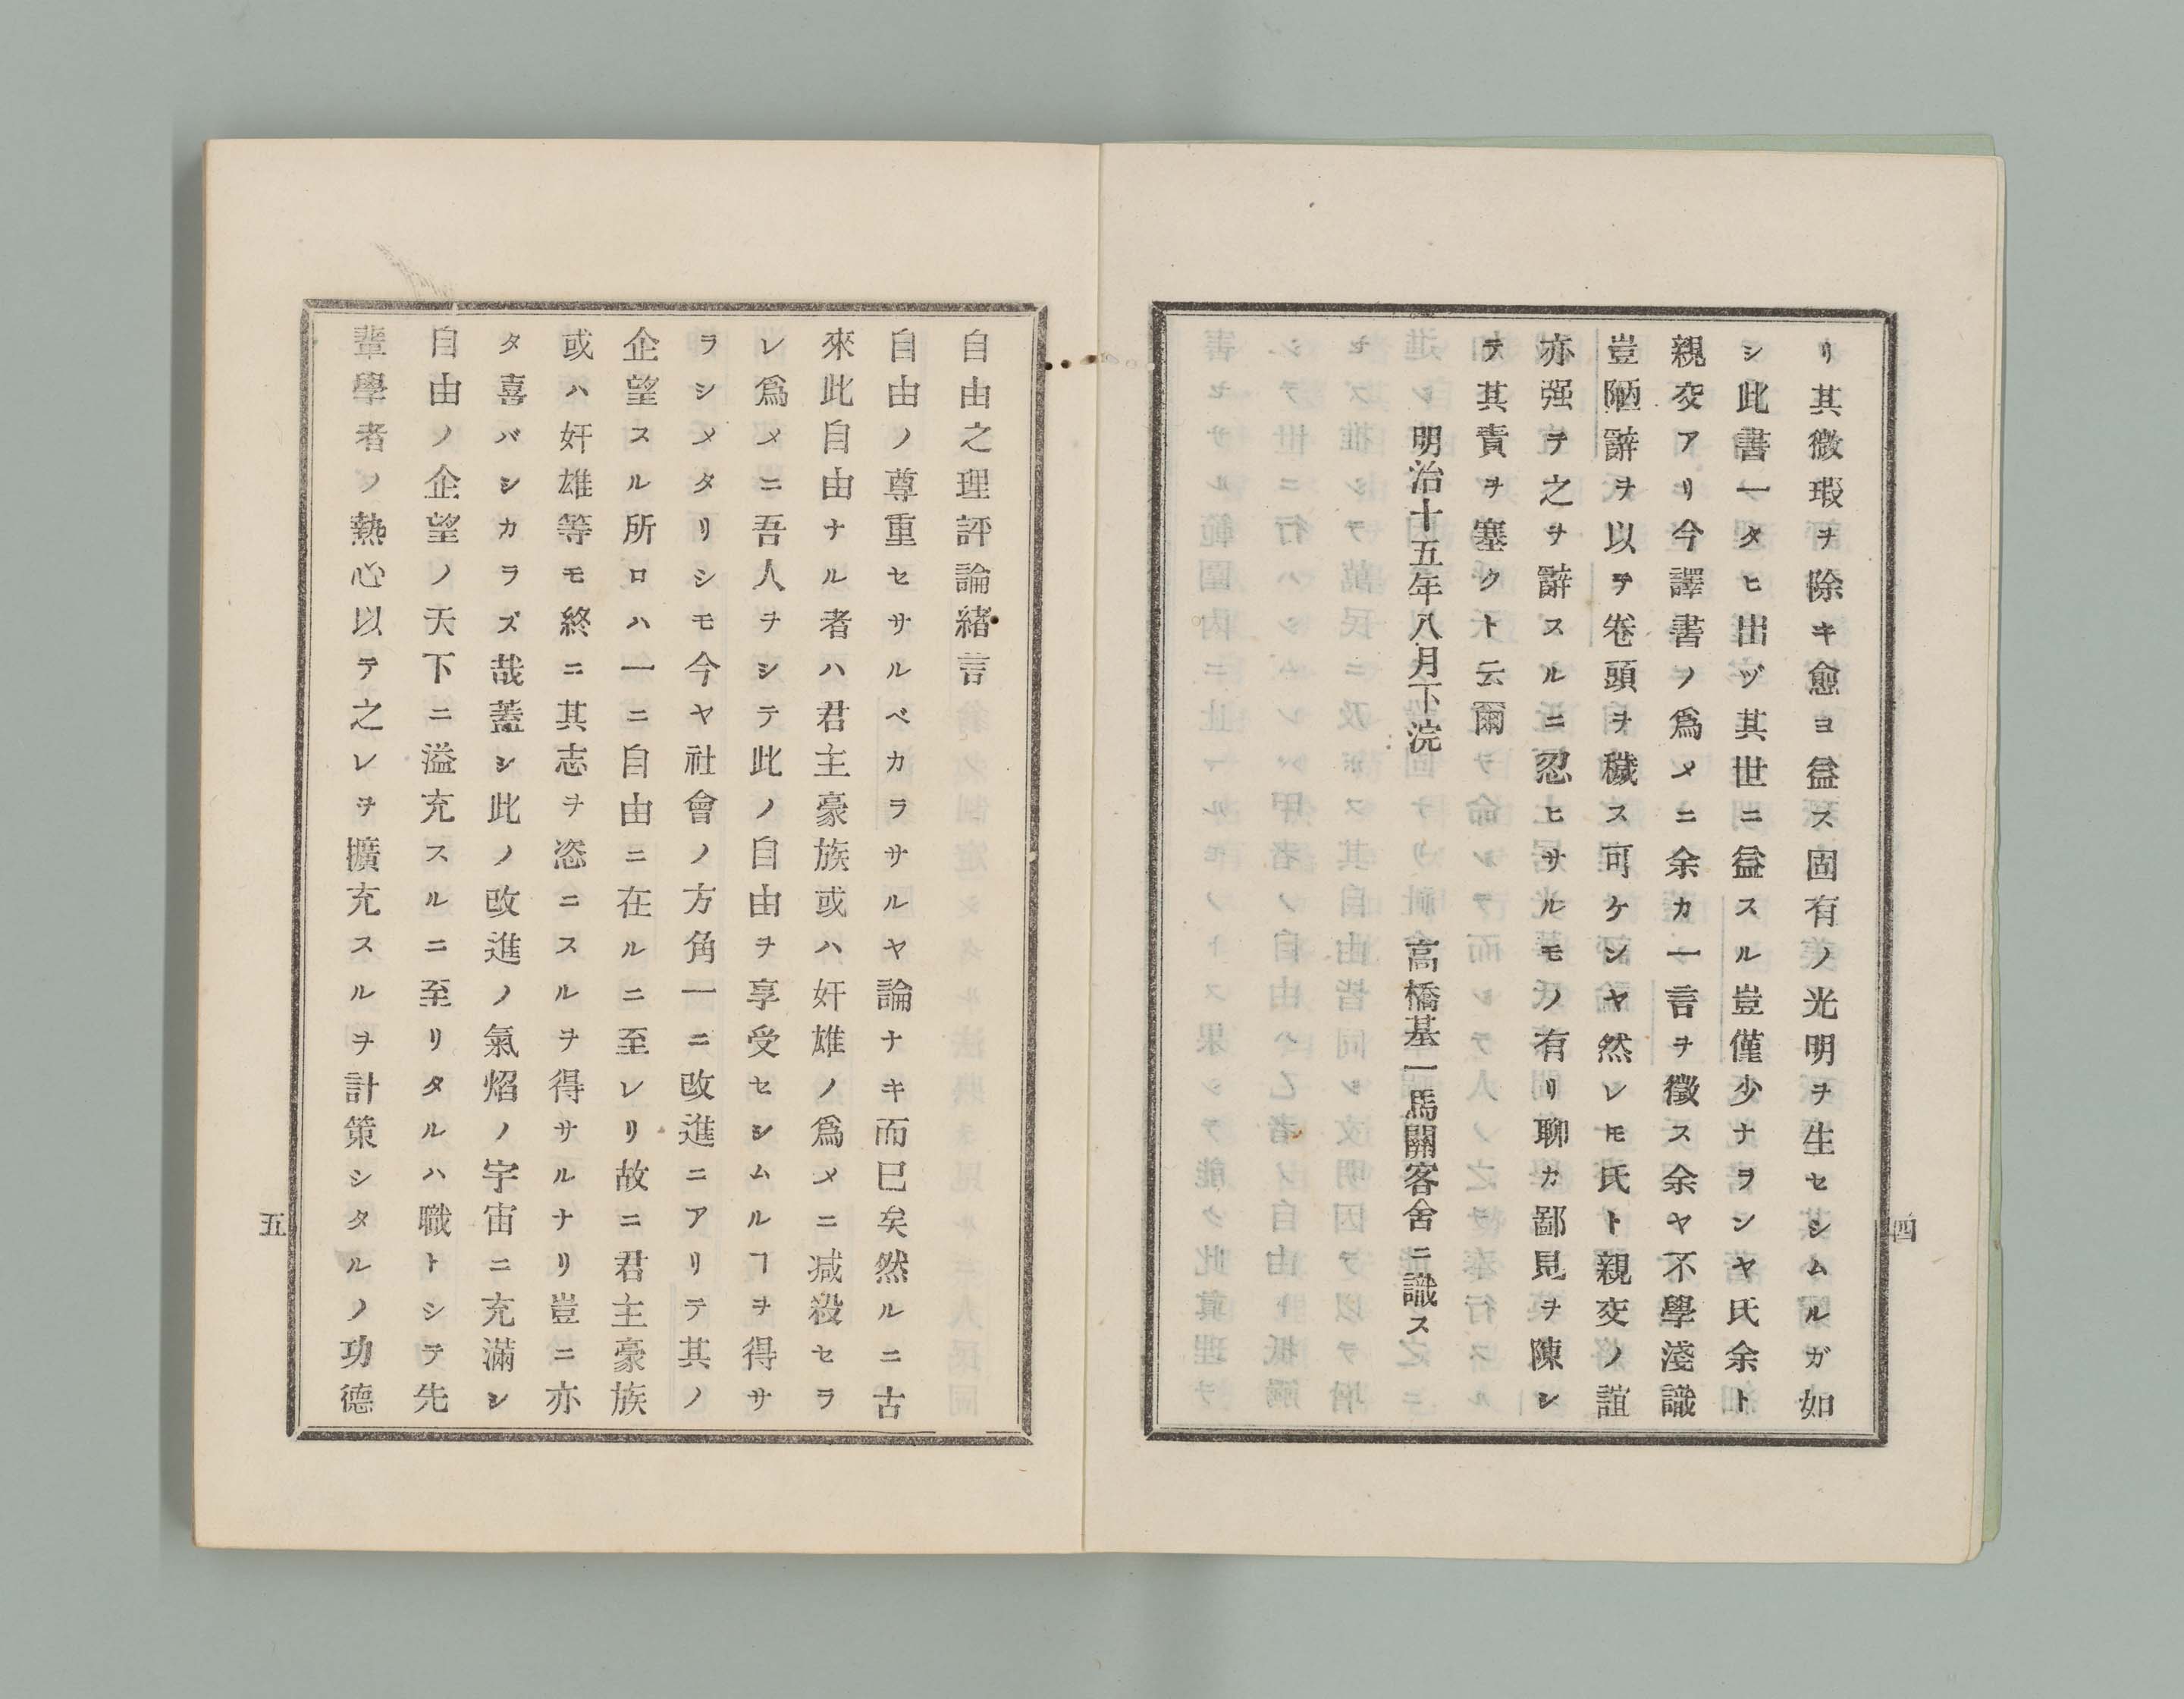 リ其微瑕ヲ除キ愈ヨ益ス固有ノ光明ヲ生セシムルガ如
シ此書一タヒ出ヅ其世ニ益スル豈僅少ナヲンヤ氏余ト
親交アリ今譯書ノ爲メニ余カ一言ヲ徴ス余ヤ不學淺識
豈陋辭ヲ以テ卷頭ヲ穢ス可ケンヤ然レㅌ氏ト親交ノ誼
亦强テ之サ辭スルニ忍ヒサルモノ有リ聊カ鄙見ヲ陳シ
テ其責ヲ塞クト云爾
明治十五年八月下浣 高橋基一馬關客舍ニ識ス
四
自由之理評論緒言
自由ノ尊重セサルベカラサルヤ論ナキ而巳矣然ルニ古
來此自由ナル者ハ君主豪族或ハ奸雄ノ爲メニ减殺セラ
レ爲メニ吾人ヲシテ此ノ自由ヲ享受セシムルヿヲ得サ
ラシメタリシモ今ヤ社會ノ方角一ニ改進ニアリテ其ノ
企望スル所ロハ一ニ自由ニ在ルニ至レリ故ニ君主豪族
或ハ奸雄等モ終ニ其志ヲ恣ニスルヲ得サルナリ豈ニ亦
タ喜バシカラズ哉蓋シ此ノ改進ノ氣焰ノ宇宙ニ充滿シ
自由ノ企望ノ天下ニ溢充スルニ至リタルハ職トシテ先
輩學者ノ熱心以テ之レヲ擴充スルヲ計策シタルノ功德
五